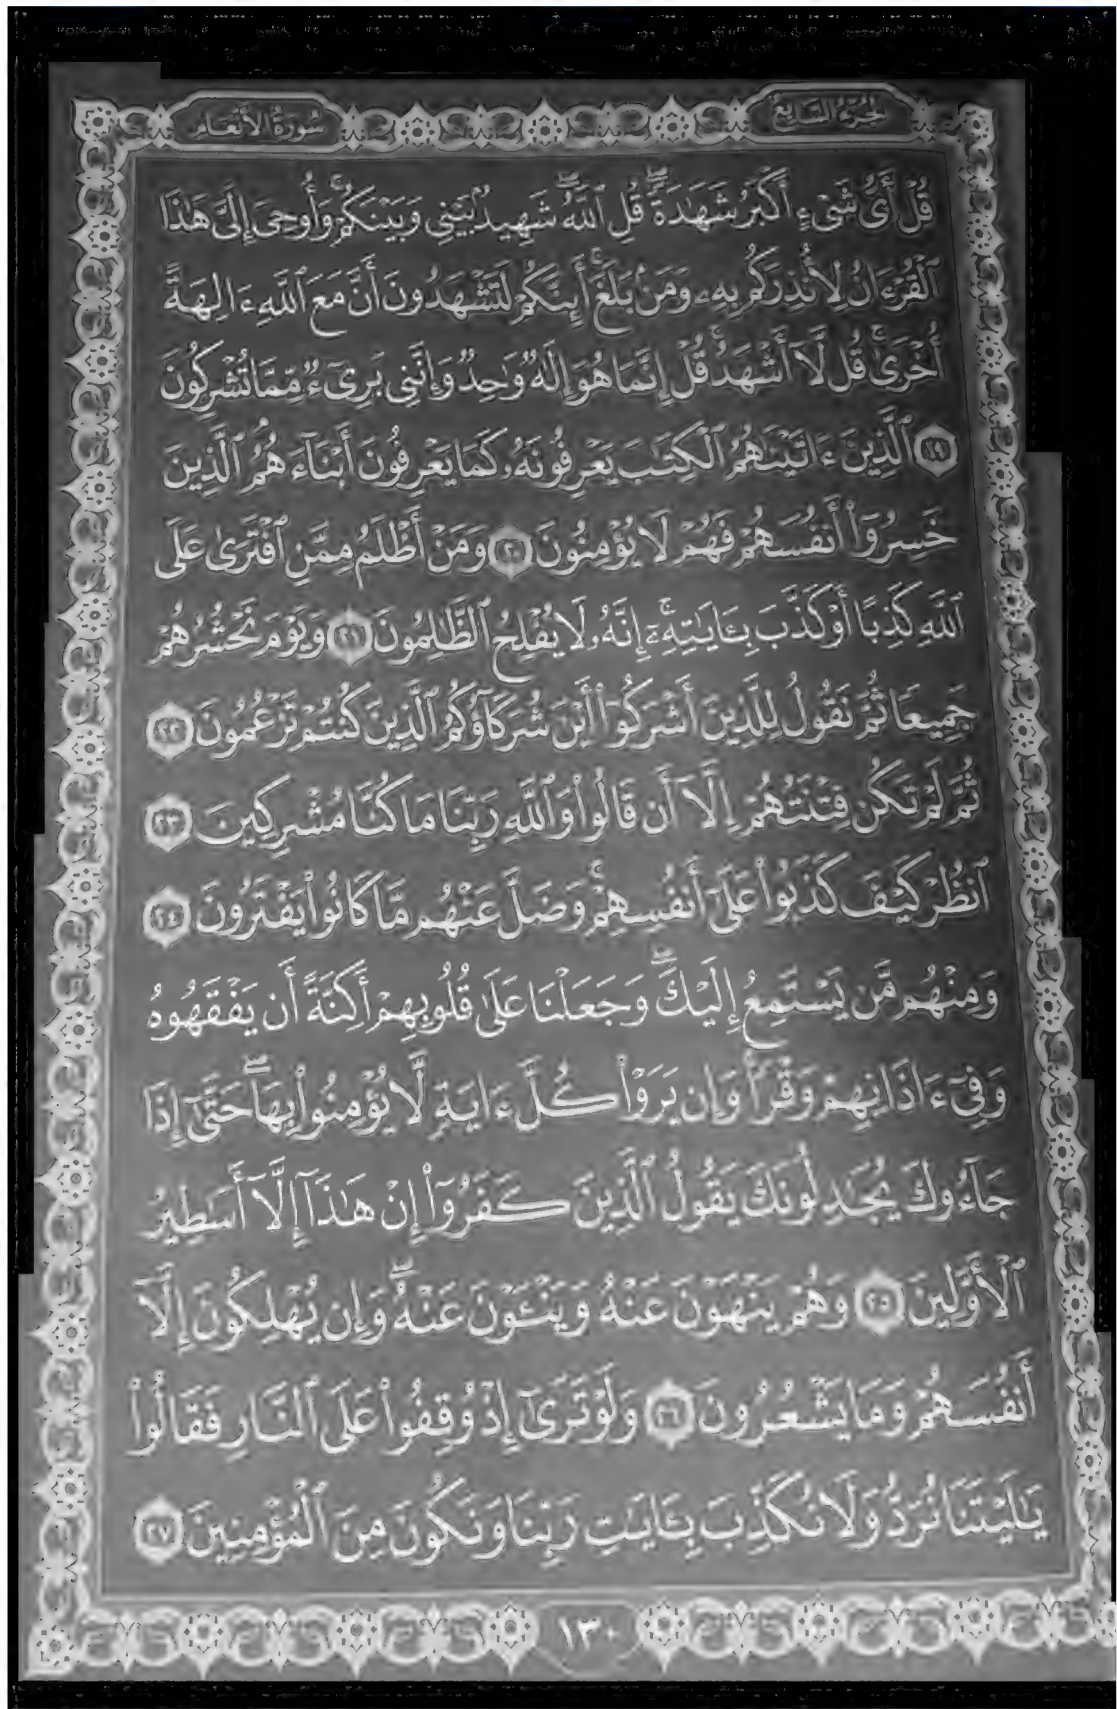 الجزء السابع
سورة الأنعام
قُلْ أَىُّ شَىْءٍ أَكْبَرُ شَهَٰدَةً ۖ قُلِ ٱللَّهُ ۖ شَهِيدٌۢ بَيْنِى وَبَيْنَكُمْ ۚ وَأُوحِىَ إِلَىَّ هَٰذَا
ٱلْقُرْءَانُ لِأُنذِرَكُم بِهِۦ وَمَنۢ بَلَغَ ۚ أَئِنَّكُمْ لَتَشْهَدُونَ أَنَّ مَعَ ٱللَّهِ ءَالِهَةً
أُخْرَىٰ ۚ قُل لَّآ أَشْهَدُ ۚ قُلْ إِنَّمَا هُوَ إِلَٰهٌ وَٰحِدٌ وَإِنَّنِى بَرِىٓءٌ مِّمَّا تُشْرِكُونَ
١٩ ٱلَّذِينَ ءَاتَيْنَٰهُمُ ٱلْكِتَٰبَ يَعْرِفُونَهُۥ كَمَا يَعْرِفُونَ أَبْنَآءَهُمُ ٱلَّذِينَ
خَسِرُوٓا۟ أَنفُسَهُمْ فَهُمْ لَا يُؤْمِنُونَ ٢٠ وَمَنْ أَظْلَمُ مِمَّنِ ٱفْتَرَىٰ عَلَى
ٱللَّهِ كَذِبًا أَوْ كَذَّبَ بِـَٔايَٰتِهِۦٓ ۗ إِنَّهُۥ لَا يُفْلِحُ ٱلظَّٰلِمُونَ ٢١ وَيَوْمَ نَحْشُرُهُمْ
جَمِيعًا ثُمَّ نَقُولُ لِلَّذِينَ أَشْرَكُوٓا۟ أَيْنَ شُرَكَآؤُكُمُ ٱلَّذِينَ كُنتُمْ تَزْعُمُونَ ٢٢
ثُمَّ لَمْ تَكُن فِتْنَتُهُمْ إِلَّآ أَن قَالُوا۟ وَٱللَّهِ رَبِّنَا مَا كُنَّا مُشْرِكِينَ ٢٣
ٱنظُرْ كَيْفَ كَذَبُوا۟ عَلَىٰٓ أَنفُسِهِمْ ۚ وَضَلَّ عَنْهُم مَّا كَانُوا۟ يَفْتَرُونَ ٢٤
وَمِنْهُم مَّن يَسْتَمِعُ إِلَيْكَ ۖ وَجَعَلْنَا عَلَىٰ قُلُوبِهِمْ أَكِنَّةً أَن يَفْقَهُوهُ
وَفِىٓ ءَاذَانِهِمْ وَقْرًا ۚ وَإِن يَرَوْا۟ كُلَّ ءَايَةٍ لَّا يُؤْمِنُوا۟ بِهَا ۖ حَتَّىٰٓ إِذَا
جَآءُوكَ يُجَٰدِلُونَكَ يَقُولُ ٱلَّذِينَ كَفَرُوٓا۟ إِنْ هَٰذَآ إِلَّآ أَسَٰطِيرُ
ٱلْأَوَّلِينَ ٢٥ وَهُمْ يَنْهَوْنَ عَنْهُ وَيَنْـَٔوْنَ عَنْهُ ۖ وَإِن يُهْلِكُونَ إِلَّآ
أَنفُسَهُمْ وَمَا يَشْعُرُونَ ٢٦ وَلَوْ تَرَىٰٓ إِذْ وُقِفُوا۟ عَلَى ٱلنَّارِ فَقَالُوا۟
يَٰلَيْتَنَا نُرَدُّ وَلَا نُكَذِّبَ بِـَٔايَٰتِ رَبِّنَا وَنَكُونَ مِنَ ٱلْمُؤْمِنِينَ ٢٧
١٣٠